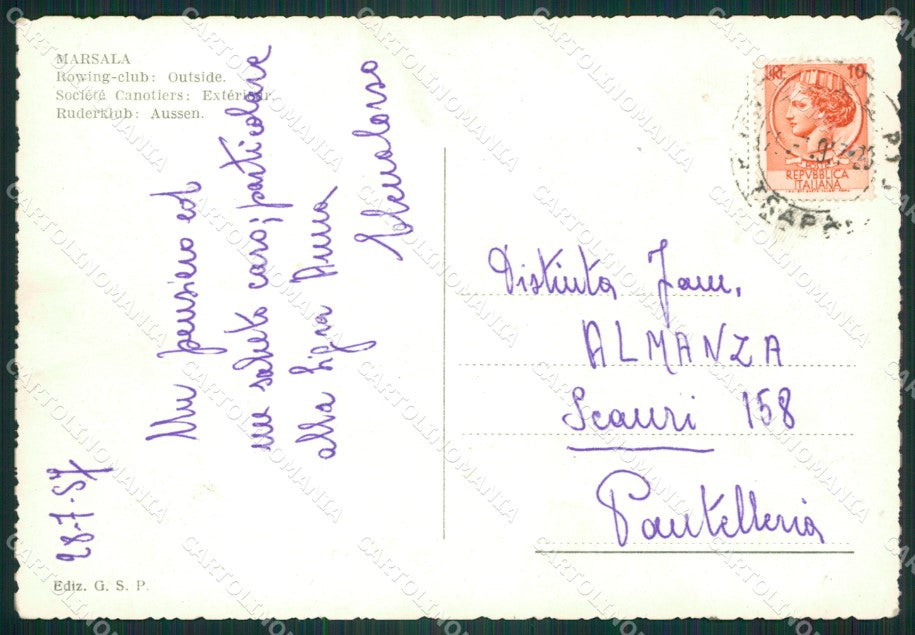 MARSALA
Rowing-club: Outside.
Société Canotiers: Extérieur.
Ruderklub: Aussen.
28-7-57
Un pensiero ed
un saluto caro; particolare
alla Sig.ra Anna
LIRE 10
POSTE
REPVBBLICA
ITALIANA
TRAPANI
Distinta Fam.
ALMANZA
Scauri 158
Pantelleria
Ediz. G. S. P.
CARTOLINOMANIA